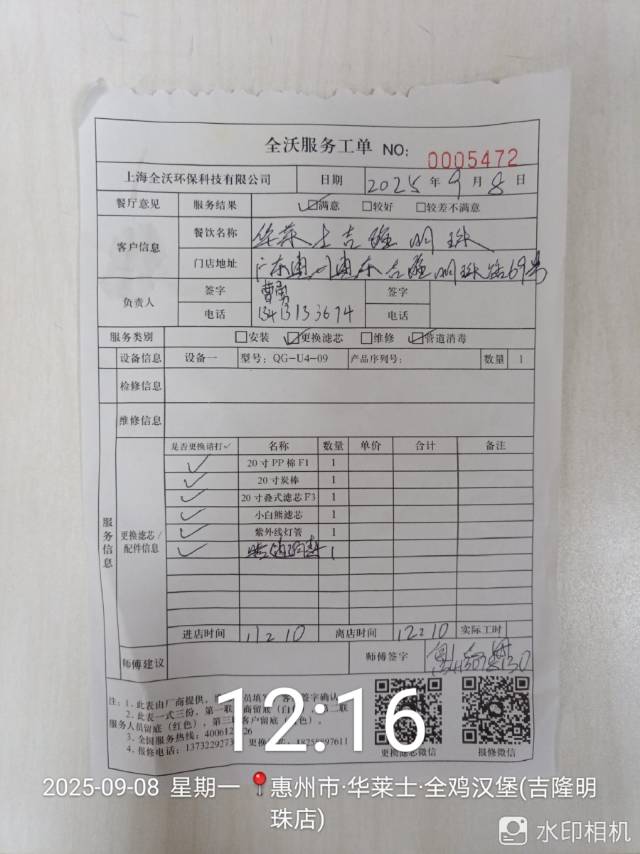 全沃服务工单 NO: 0005472
上海全沃环保科技有限公司 日期 2025 年 9 月 8 日
餐厅意见 服务结果 ☑满意 □较好 □较差不满意
客户信息 餐饮名称 华莱士吉隆明珠
门店地址 吉隆明珠路69号
负责人 签字 签字
电话 电话
服务类别 □安装 ☑更换滤芯 □维修 ☑管道消毒
设备信息 设备一 型号: QG-U4-09 产品序列号: 数量 1
检修信息
维修信息
服务信息
更换滤芯/配件信息
是否更换请打✓ 名称 数量 单价 合计 备注
✓ 20寸PP棉F1 1
✓ 20寸炭棒 1
✓ 20寸叠式滤芯F3 1
✓ 小白熊滤芯 1
✓ 紫外线灯管 1
✓ 1
进店时间 11:10 离店时间 12:10 实际工时
师傅建议 师傅签字
注: 1. 此表由厂商提供,
2. 此表一式三份,
服务人员留底(红色),
3. 全国服务热线:
4. 报修电话:
更换滤芯微信 报修微信
12:16
2025-09-08 星期一 惠州市·华莱士·全鸡汉堡(吉隆明
珠店)
水印相机